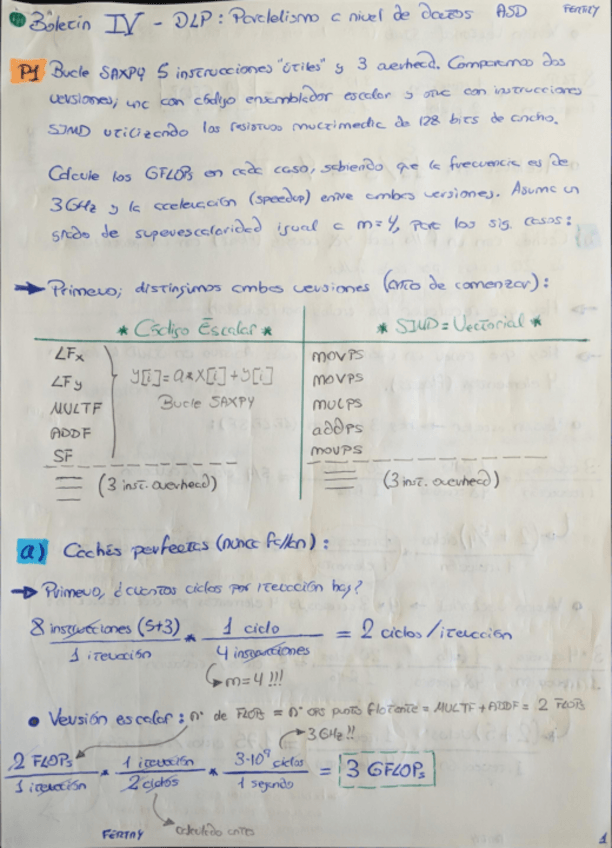 Boletín IV - DLP: Paralelismo a nivel de datos ASD FERTRY
P1 Bucle SAXPY 5 instrucciones "útiles" y 3 overhead. Comparamos dos
versiones; una con código ensamblador escalar y otra con instrucciones
SIMD utilizando los registros multimedia de 128 bits de ancho.
Calcule los GFLOPs en cada caso, sabiendo que la frecuencia es de
3GHz y la aceleración (speedup) entre ambas versiones. Asuma un
grado de superescalaridad igual a m=4, para los sig. casos:
→ Primero; distinguimos ambas versiones (antes de comenzar):
* Código Escalar * * SIMD = Vectorial *
LFx MOVPS
LFy y[i]=a*x[i]+y[i] MOVPS
MULTF Bucle SAXPY MULPS
ADDF addps
SF MOVPS
(3 inst. overhead) (3 inst. overhead)
a) Cachés perfectas (nunca fallan):
→ Primero, ¿cuántos ciclos por iteración hay?
8 instrucciones (5+3) / 1 iteración * 1 ciclo / 4 instrucciones = 2 ciclos/iteración
m=4!!!
• Versión escalar: nº de FLOPs = nº ops punto flotante = MULTF + ADDF = 2 FLOPs
3GHz!!
2 FLOPs / 1 iteración * 1 iteración / 2 ciclos * 3·10⁹ ciclos / 1 segundo = 3 GFLOPs
FERTRY calculado antes
1